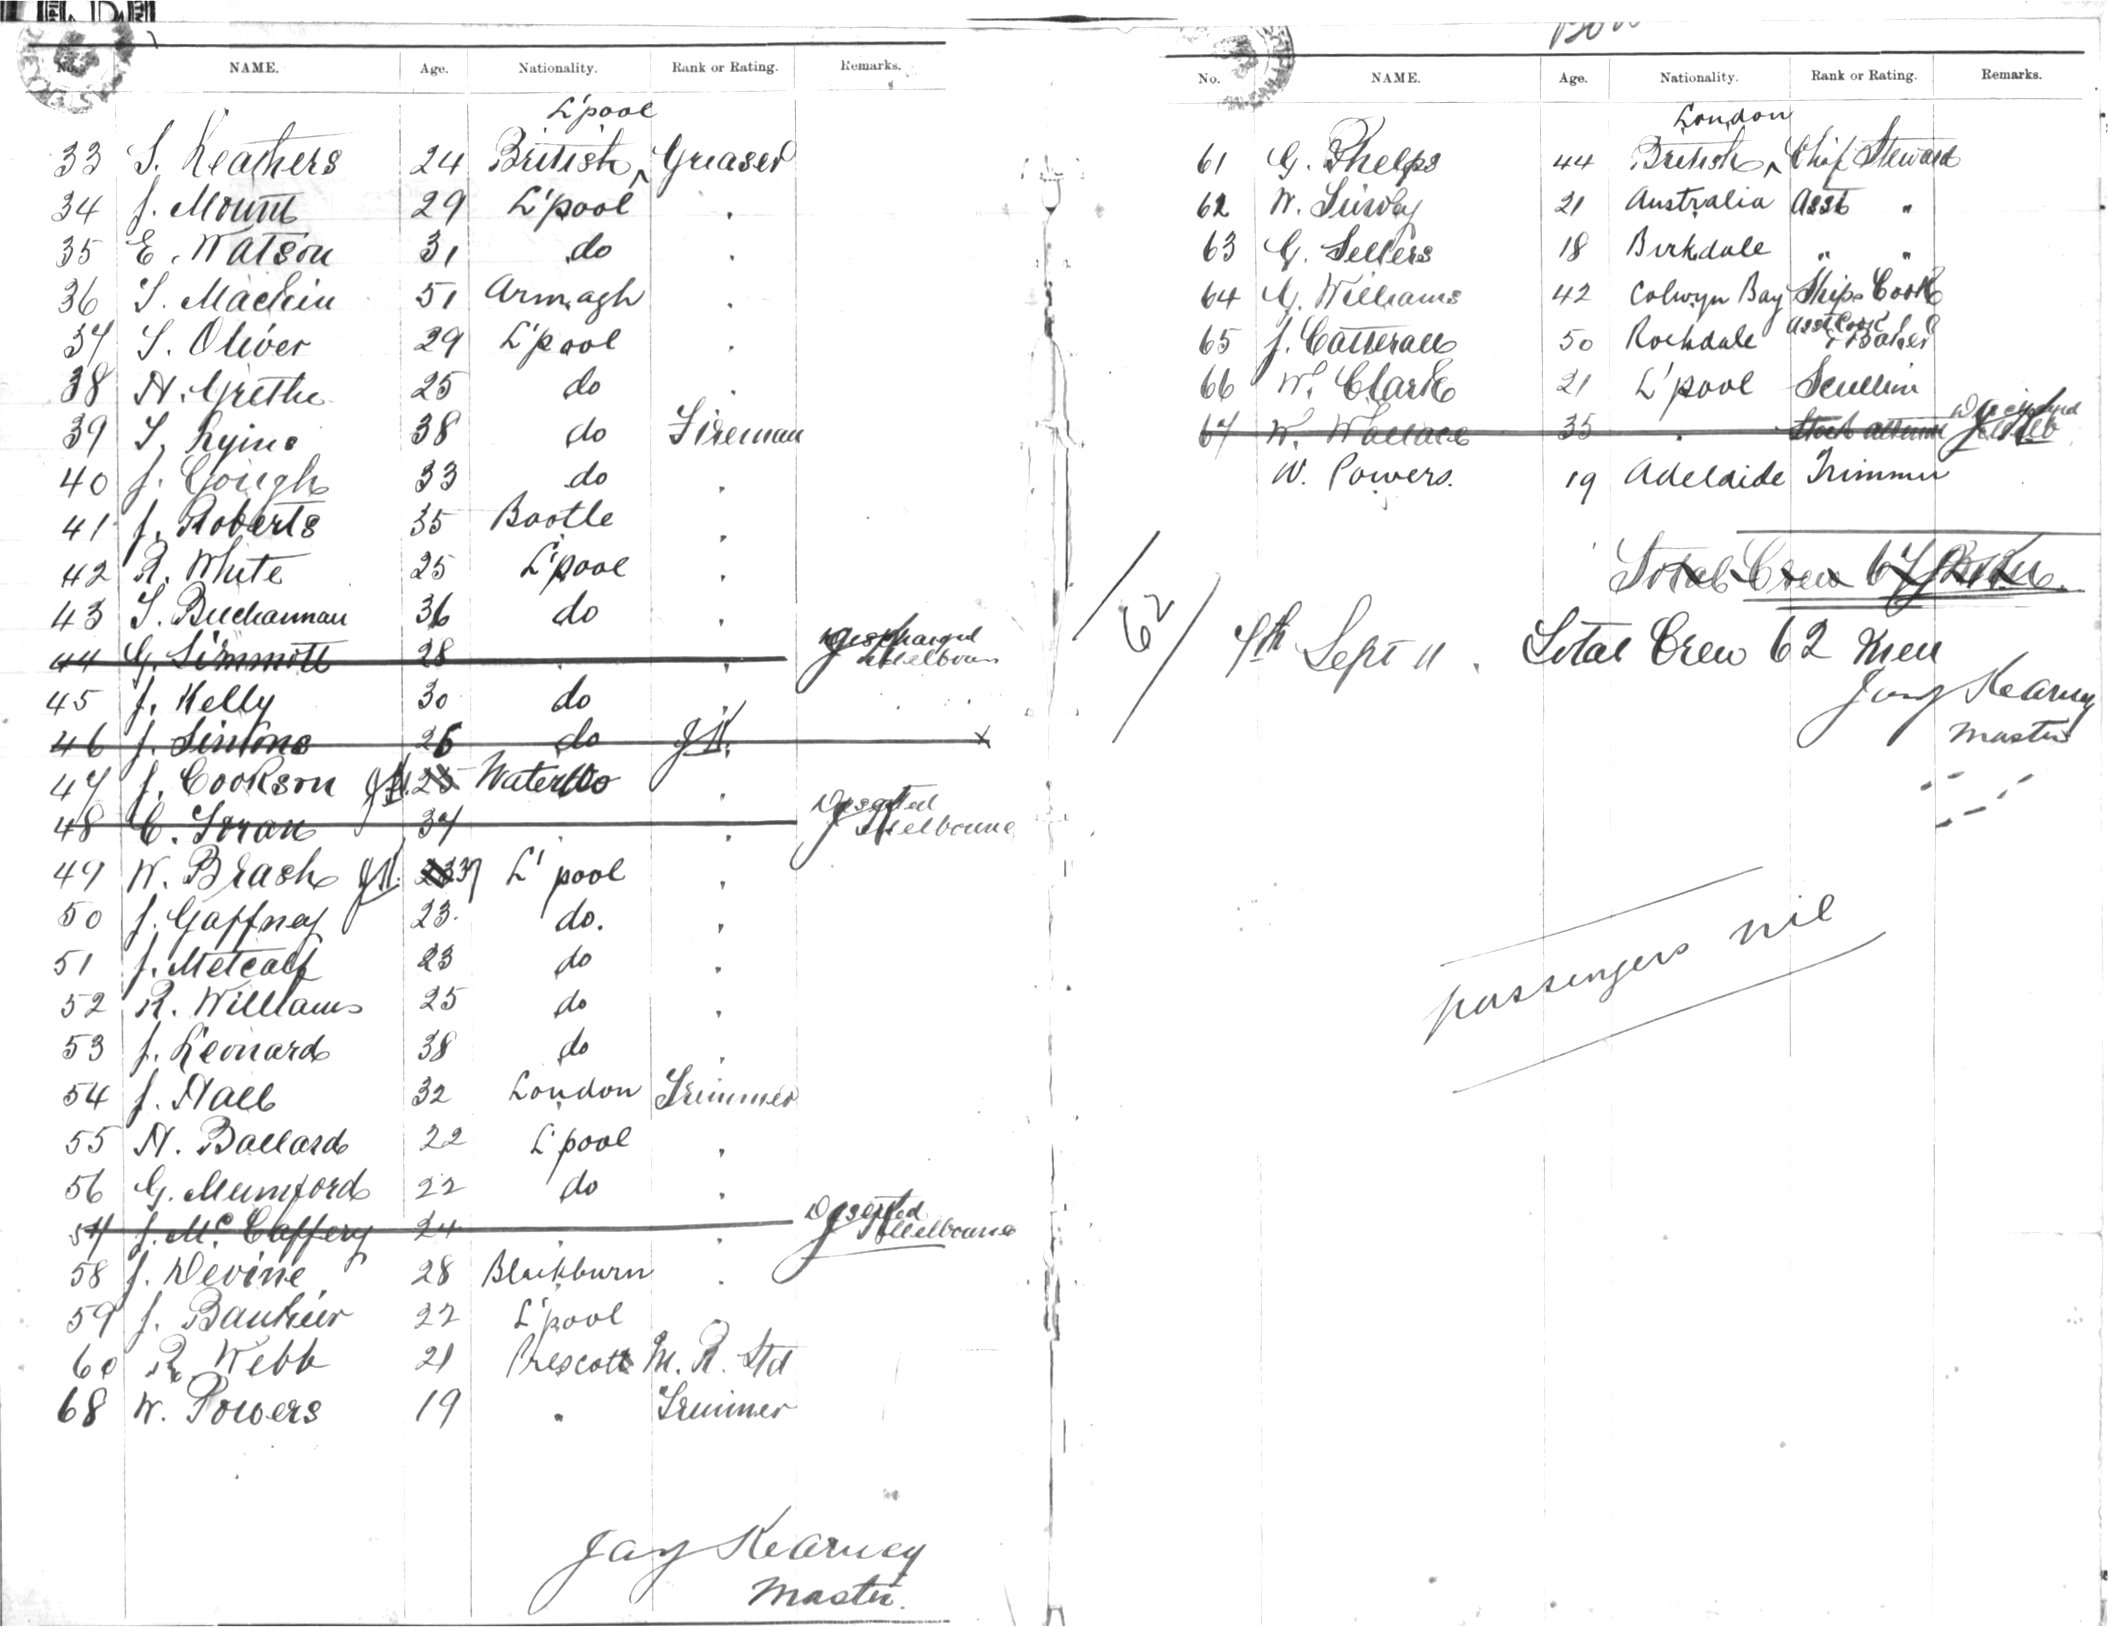 No. NAME. Age. Nationality. Rank or Rating. Remarks.
L'pool
33 T. Leathers 24 British ^ Greaser
34 J. Mount 29 L'pool "
35 E. Watson 31 do "
36 T. Mackin 51 Armagh "
37 T. Oliver 29 L'pool "
38 H. Grethe 25 do "
39 T. Lyins 38 do Fireman
40 J. Gough 33 do "
41 J. Roberts 35 Bootle "
42 R. White 25 L'pool "
43 T. Buchannan 36 do "
44 G. Simmott 28 " " Discharged Melbourn
45 J. Kelly 30 do "
46 J. Simons 26 do JK. x
47 J. Cookson JK. 25 Waterloo "
48 C. Foran 37 " " Deserted Melbourne
49 W. Brash JK. 37 L'pool "
50 J. Gaffney 23. do. "
51 J. Metcalf 23 do "
52 R. Williams 25 do "
53 J. Leonard 38 do "
54 J. Hall 32 London Trimmer
55 H. Ballard 22 L'pool "
56 G. Mumford 22 do "
57 J. McCaffery 24 " " Deserted Melbourne
58 J. Devine 28 Blackburn "
59 J. Bankier 22 L'pool
60 R. Webb 21 Prescott M. R. Std
68 W. Powers 19 " Trimmer
Jas Kearney
Master.
No. NAME. Age. Nationality. Rank or Rating. Remarks.
London
61 G. Phelps 44 British ^ Chief Steward
62 W. 21 Australia Asst "
63 G. Sellers 18 Birkdale " "
64 G. Williams 42 Colwyn Bay Ships Cook
65 J. Catterall 50 Rochdale Asst Cook & Baker
66 W. Clark 21 L'pool Scullion
67 W. Wallace 35 " Discharged Melb
W. Powers. 19 Adelaide Trimmer
Total Crew 67
/62/ 7th Sept 11. Total Crew 62 Men
Jas Kearney
Master
passengers nil